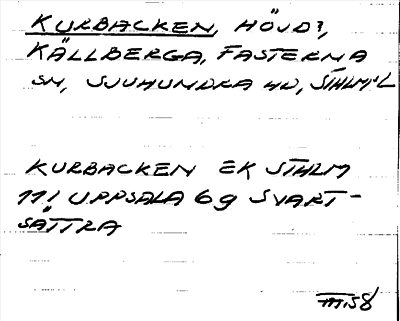 KURBACKEN, HÖJD?,
KÄLLBERGA, FASTERNA
SN, SJUHUNDRA HD, STHLMS L
KURBACKEN EK STHLM
111 UPPSALA 6g SVART-
SÄTTRA